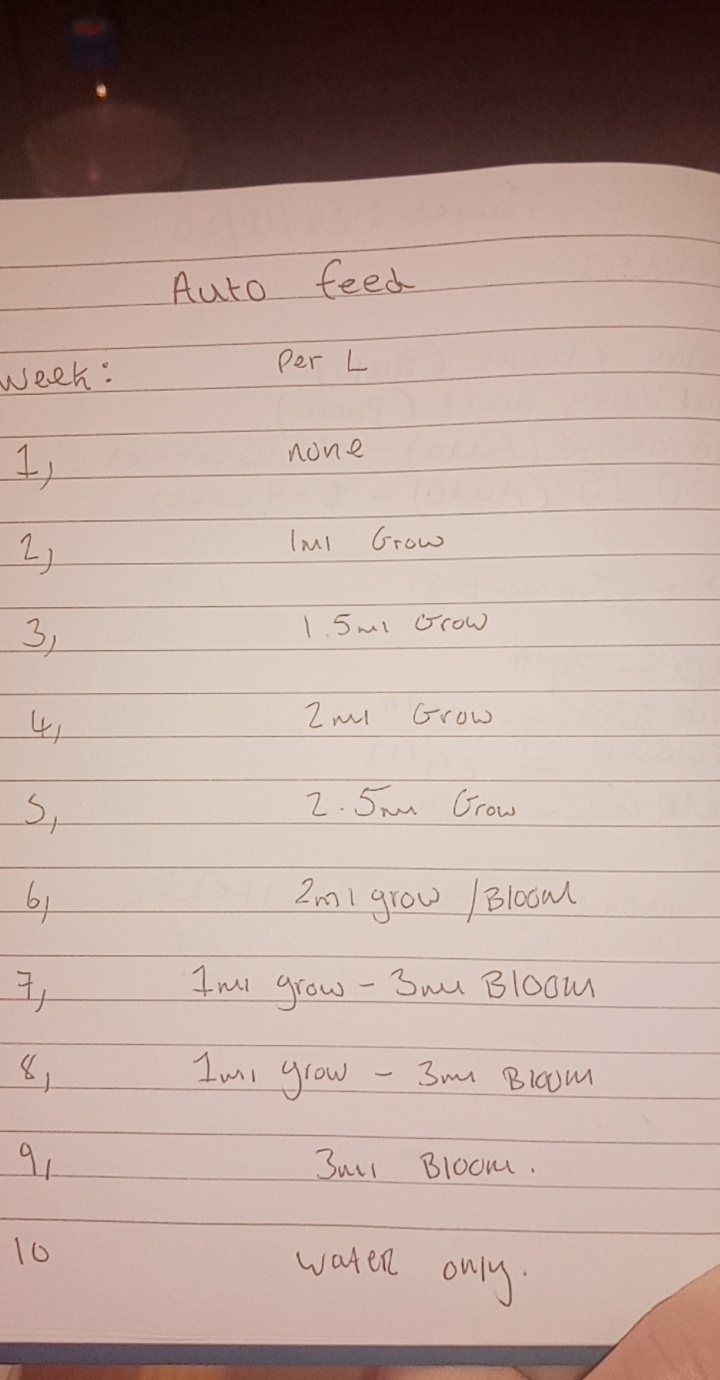 Auto feed
Week: Per L
1, none
2, 1ml Grow
3, 1.5ml Grow
4, 2ml Grow
5, 2.5ml Grow
6, 2ml grow / Bloom
7, 1ml grow - 3ml Bloom
8, 1ml grow - 3ml Bloom
9, 3ml Bloom.
10 water only.